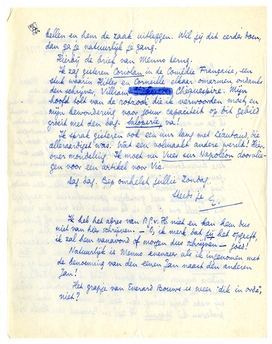 bellen en hem de zaak uitleggen. Wil jij dit eerder doen,
dan ga je natuurlijk je gang.
Hierbij de brief van Menno terug.
Ik zag gisteren Coriolan in de Comédie Française, een
stuk waarin Hitler en Corneille elkaar omarmen ondanks
den schrijver, William Chequespire. Mijn
hoofd tolt van de rotzooi die ik verwoorden moet en
mijn bewondering voor jouw capaciteit op dit gebied
groeit met den dag. Saloperie, va!
Ik sprak gisteren ook een uur lang met Léautaud, die
alleraardigst was. Wat een volmaakt andere wereld! Hier-
over mondeling. Ik moet nu Vues sur Napoléon doorvlie-
gen voor een artikel voor Het Vad.
Dag dag. Bep omhelst jullie Zondag
Steeds je E.
Ik heb het adres van P.P.C. niet en kan dus
niet van hier schrijven. — O, ik merk dat jij het opgeeft,
ik zal hem vanavond of morgen dus schrijven — goed!
Natuurlijk is Menno evenzeer als ik ingenomen met
de benoeming van den eenen Jan naast den anderen
Jan!
Het grapje van Everard Bouws is weer "dik in orde",
niet?